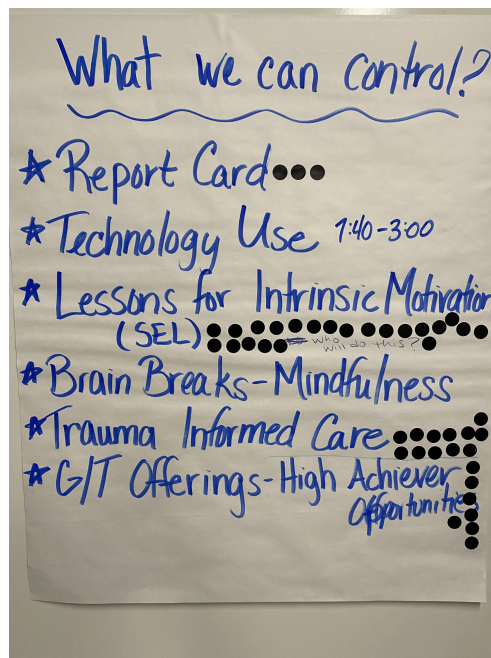 What we can control?
☆ Report Card
☆ Technology Use 7:40-3:00
☆ Lessons for Intrinsic Motivation
(SEL) who will do this?
☆ Brain Breaks - Mindfulness
☆ Trauma Informed Care
☆ G/T Offerings - High Achiever
Opportunities